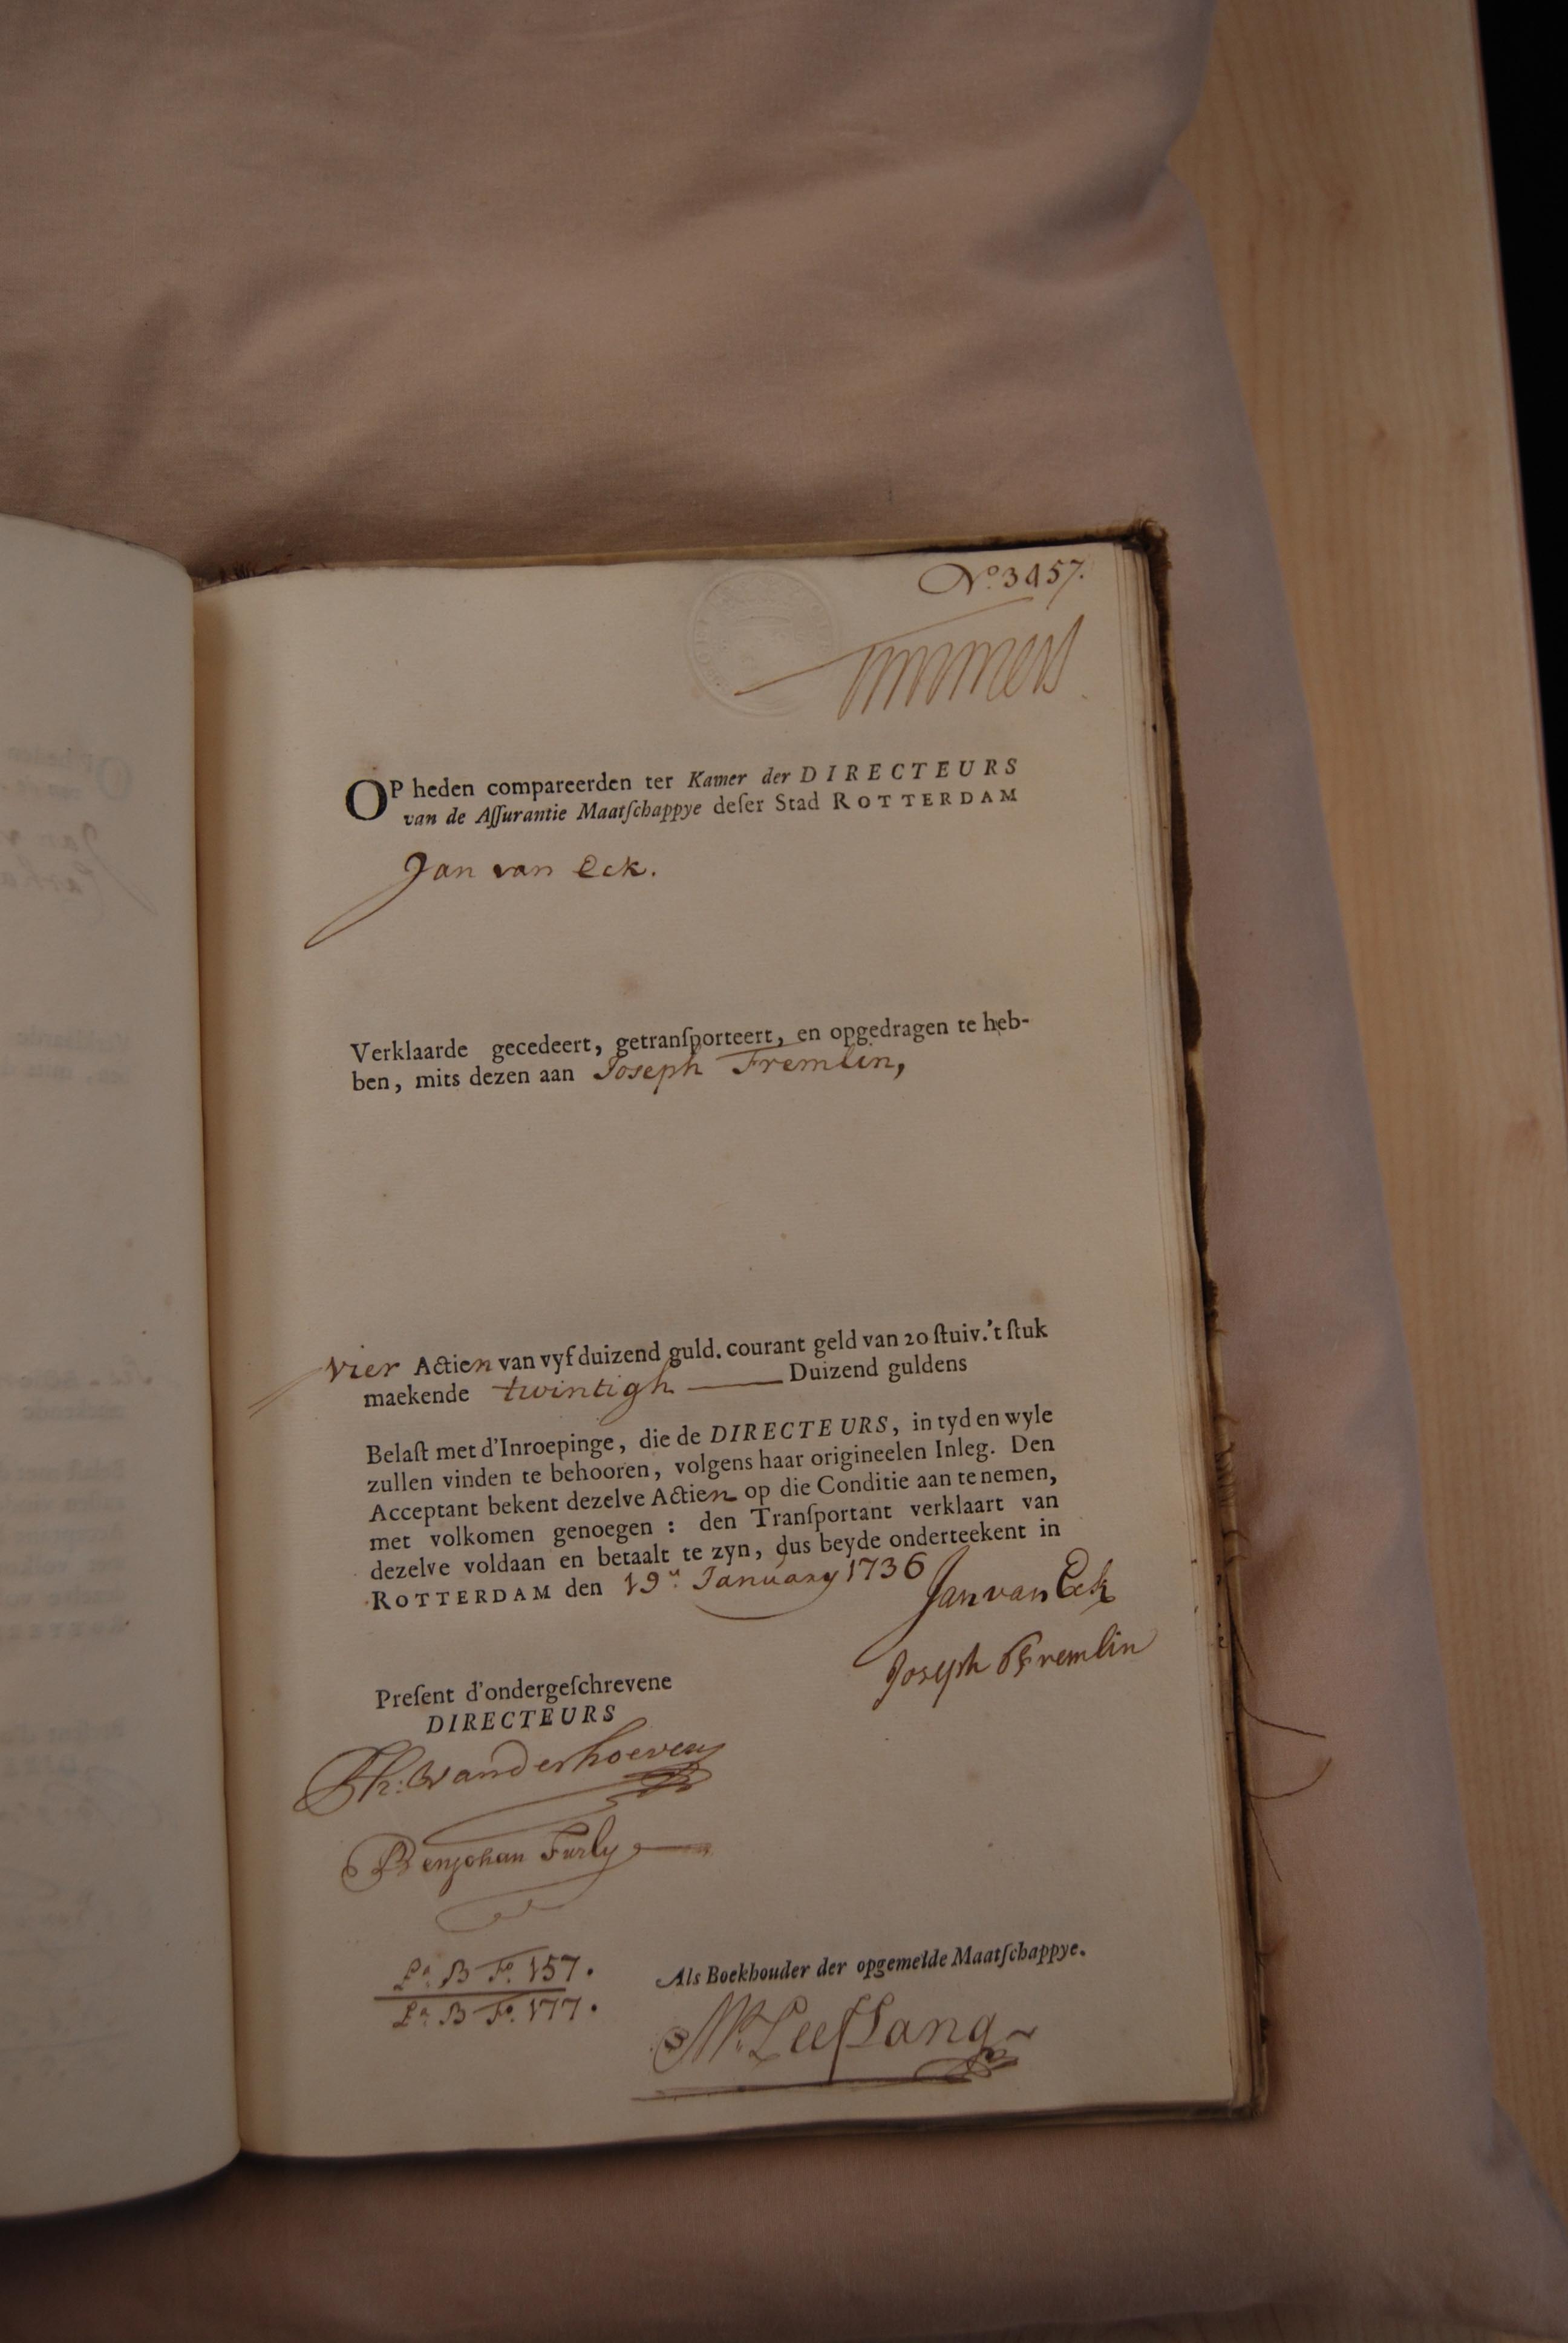 No. 3457.
Timmers
OP heden compareerden ter Kamer der DIRECTEURS
van de Aſſurantie Maatſchappye deſer Stad ROTTERDAM
Jan van Eck.
Verklaarde gecedeert, getranſporteert, en opgedragen te heb-
ben, mits dezen aan Joseph Fremlin,
Vier Actien van vyf duizend guld. courant geld van 20 ſtuiv. 't ſtuk
maekende twintigh —— Duizend guldens
Belaſt met d'Inroepinge, die de DIRECTEURS, in tyd en wyle
zullen vinden te behooren, volgens haar origineelen Inleg. Den
Acceptant bekent dezelve Actien op die Conditie aan te nemen,
met volkomen genoegen : den Tranſportant verklaart van
dezelve voldaan en betaalt te zyn, dus beyde onderteekent in
ROTTERDAM den 19en January 1736
Jan van Eck
Joseph Fremlin
Preſent d'ondergeſchrevene
DIRECTEURS
Th: Vanderhoeven
Benjohan Furly
La. B Fo. 157.
La. B Fo. 177.
Als Boekhouder der opgemelde Maatſchappye.
Leeſſang